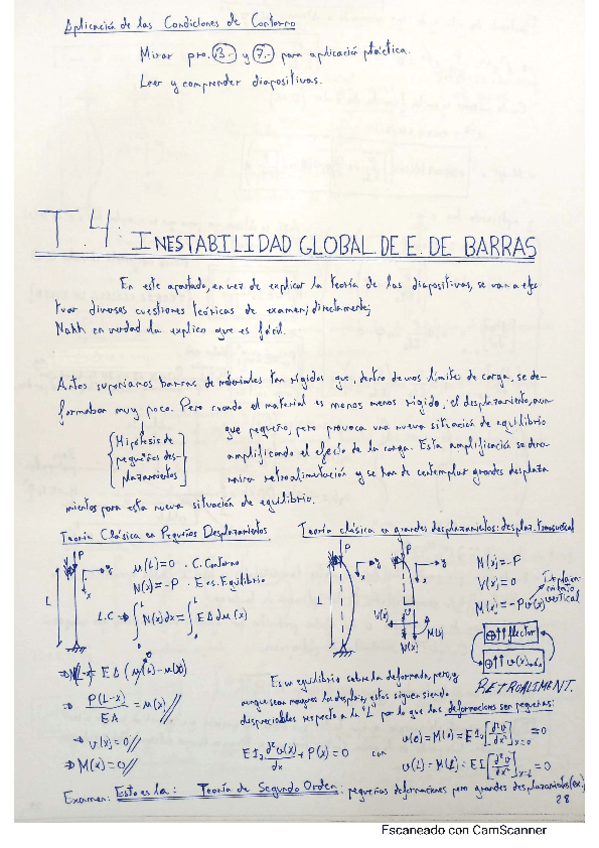 Aplicación de las Condiciones de Contorno
Mirar pro. 3.- y 7.- para aplicación práctica.
Leer y comprender diapositivas.
T.4: INESTABILIDAD GLOBAL DE E. DE BARRAS
En este apartado, en vez de explicar la teoría de las diapositivas, se van a efec
tuar diversas cuestiones teóricas de examen, directamente;
Nahh en verdad la explico que es fácil.
Antes suponíamos barras de materiales tan rígidos que, dentro de unos límites de carga, se de-
formaban muy poco. Pero cuando el material es menos rígido, el desplazamiento, aun
que pequeño, pero provoca una nueva situación de equilibrio
Hipótesis de
pequeños des-
plazamientos
amplificando el efecto de la carga. Esta amplificación se deno
mina retroalimentación y se han de contemplar grandes desplaza
mientos para esta nueva situación de equilibrio.
Teoría Clásica en Pequeños Desplazamientos
Teoría clásica en grandes desplazamientos: desplaz. transversal
P
L
x
u(L)=0 · C. Contorno
N(x)=-P · Ecs. Equilibrio
L.C → ∫ N(x)dx = ∫ EA du(x)
EA (u(L)-u(x)
⇒ P(L-x)/EA = u(x)//
⇒ v(x)=0//
⇒ M(x)=0//
P
L
x
V(x)
N(x)
M(x)
N(x)=-P
V(x)=0
M(x)=-Pv(x)
vertical
⊕↑↑ flector
⊕↑↑ v(x)
RETROALIMENT.
Es un equilibrio sobre la deformada, pero, y
aunque sean mayores los desplaz, estos siguen siendo
despreciables respecto a la "L" por lo que las deformaciones son pequeñas:
EI d²v(x)/dx + P(x)=0 con
v(0)=M(0)=EI [d²v/dx²]x=0 =0
v(L)=M(L)=EI [d²v/dx²]x=L =0
Examen: Esto es la: Teoría de Segundo Orden: pequeñas deformaciones pero grandes desplazamientos
28
Escaneado con CamScanner